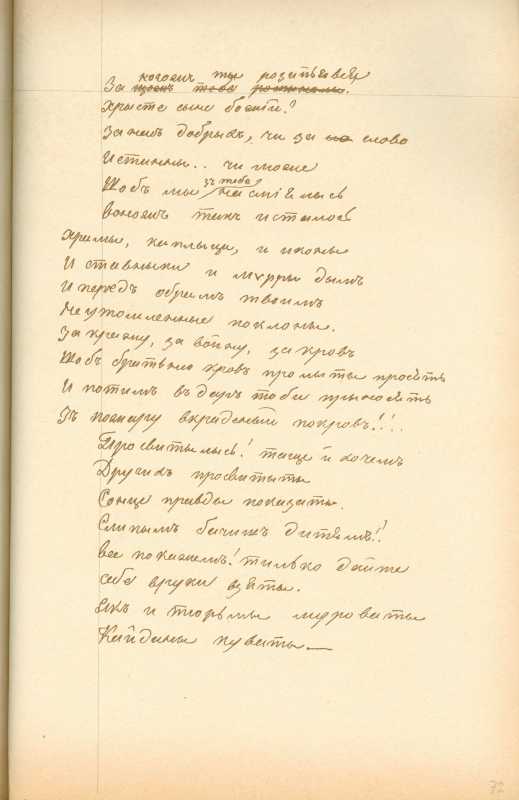 когожъ ты розипьявся
За щожъ тебе роспинали.
Христе сыне божій!
За насъ добрыхъ, чи за не слово
Истинны.. чи може
Щобъ мы зъ тебе насміялысь
Воножъ такъ и сталося
Храмы, каплыци, и иконы
И ставныки и мѵрры дымъ
И передъ образомъ твоимъ
Неутомленные поклоны.
За кражу, за войну, за кровъ
Щобъ братьню кровъ пролыты просять
И потимъ въ даръ тоби прыносять
Зъ пожару вкраденый покровъ!!..
Просвитылысь! таще й хочемъ
Другихъ просвитыты
Сонце правды показаты.
Слипымъ бачишъ дитямъ!!
Все покажемъ! тилько дайте
Себе вруки взяты.
Якъ и тюрьмы муроваты
Кайданы куваты—
72